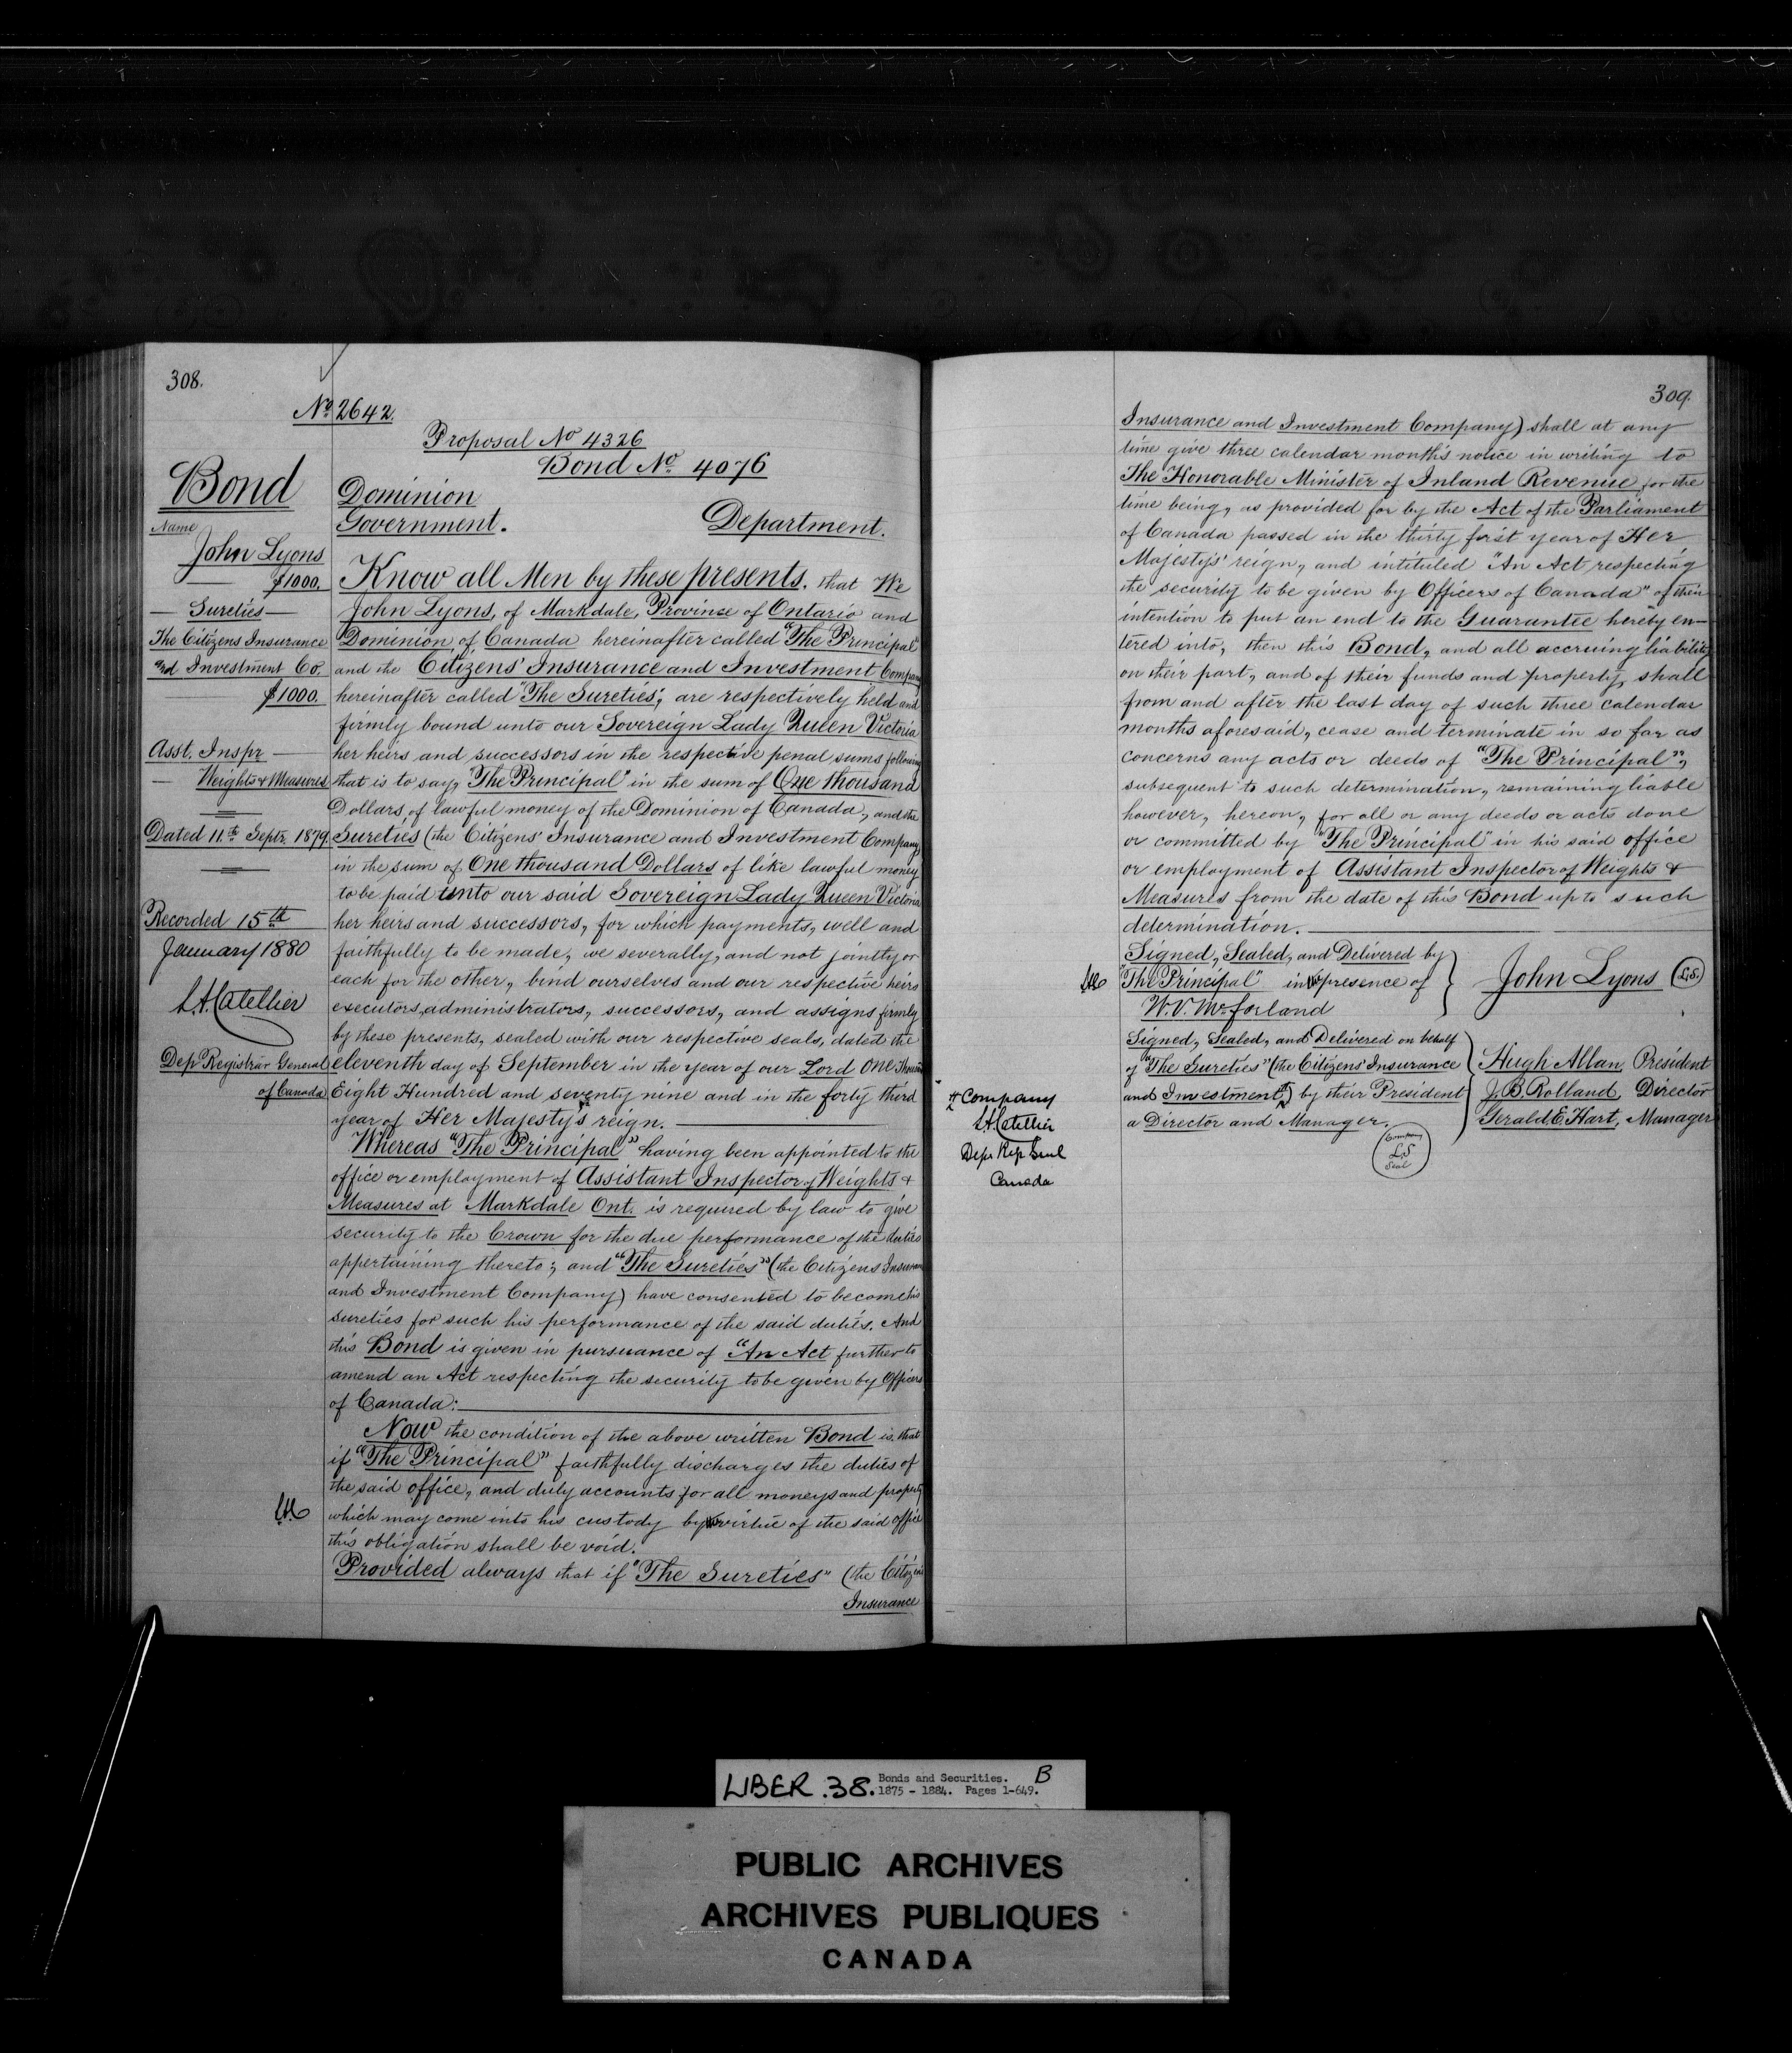 308.
No 2642.
Proposal No 4326
Bond No. 4076
Bond
Name
John Lyons
$1000.
Sureties
The Citizens Insurance
and Investment Co.
$1000.
Asst. Inspr
Weights & Measures
Dated 11th Septr. 1879.
Recorded 15th
January 1880
L.A. Catellier
Dep Registrar General
of Canada
Dominion
Government. Department.
Know all Men by these presents. that We
John Lyons, of Markdale, Province of Ontario and
Dominion of Canada hereinafter called "The Principal"
and the Citizens' Insurance and Investment Company
hereinafter called "The Sureties", are respectively held and
firmly bound unto our Sovereign Lady Queen Victoria
her heirs and successors in the respective penal sums following
that is to say, "The Principal" in the sum of One thousand
Dollars, of lawful money of the Dominion of Canada, and the
Sureties (the Citizens' Insurance and Investment Company)
in the sum of One thousand Dollars of like lawful money
to be paid unto our said Sovereign Lady Queen Victoria
her heirs and successors, for which payments, well and
faithfully to be made, we severally, and not jointly or
each for the other, bind ourselves and our respective heirs
executors, administrators, successors, and assigns firmly
by these presents, sealed with our respective seals, dated the
eleventh day of September in the year of our Lord One Thousand
Eight Hundred and seventy nine and in the forty third
year of Her Majesty's reign.
Whereas "The Principal" having been appointed to the
office or employment of Assistant Inspector of Weights &
Measures at Markdale Ont. is required by law to give
security to the Crown for the due performance of the duties
appertaining thereto; and "The Sureties" (the Citizens Insurance
and Investment Company) have consented to become his
sureties for such his performance of the said duties. And
this Bond is given in pursuance of "An Act further to
amend an Act respecting the security to be given by Officers
of Canada:
Now the condition of the above written Bond is, that
if "The Principal" faithfully discharges the duties of
the said office, and duly accounts for all moneys and property
which may come into his custody by virtue of the said office
this obligation shall be void.
Provided always that if "The Sureties" (the Citizens
Insurance
309.
Insurance and Investment Company) shall at any
time give three calendar month's notice in writing to
The Honorable Minister of Inland Revenue for the
time being, as provided for by the Act of the Parliament
of Canada passed in the thirty first year of Her
Majesty's' reign, and intituled "An Act respecting
the security to be given by Officers of Canada" of their
intention to put an end to the Guarantee hereby en-
tered into, then this Bond, and all accruing liability
on their part, and of their funds and property, shall
from and after the last day of such three calendar
months aforesaid, cease and terminate in so far as
concerns any acts or deeds of "The Principal",
subsequent to such determination, remaining liable
however, hereon, for all or any deeds or acts done
or committed by "The Principal" in his said office
or employment of Assistant Inspector of Weights &
Measures from the date of this Bond up to such
determination.
Signed, Sealed, and Delivered by
"The Principal" in presence of
W. V. McForland
John Lyons L.S.
Signed, Sealed, and Delivered on behalf
of "The Sureties" (the Citizens' Insurance
and Investment) by their President
a Director and Manager.
Hugh Allan, President
J. B. Rolland, Director
Gerald E. Hart, Manager
Company
L.S
Seal
Company
L.A. Catellier
Depr Regr Genl
Canada
LIBER. 38. Bonds and Securities. B
1875 - 1884. Pages 1-649.
PUBLIC ARCHIVES
ARCHIVES PUBLIQUES
CANADA